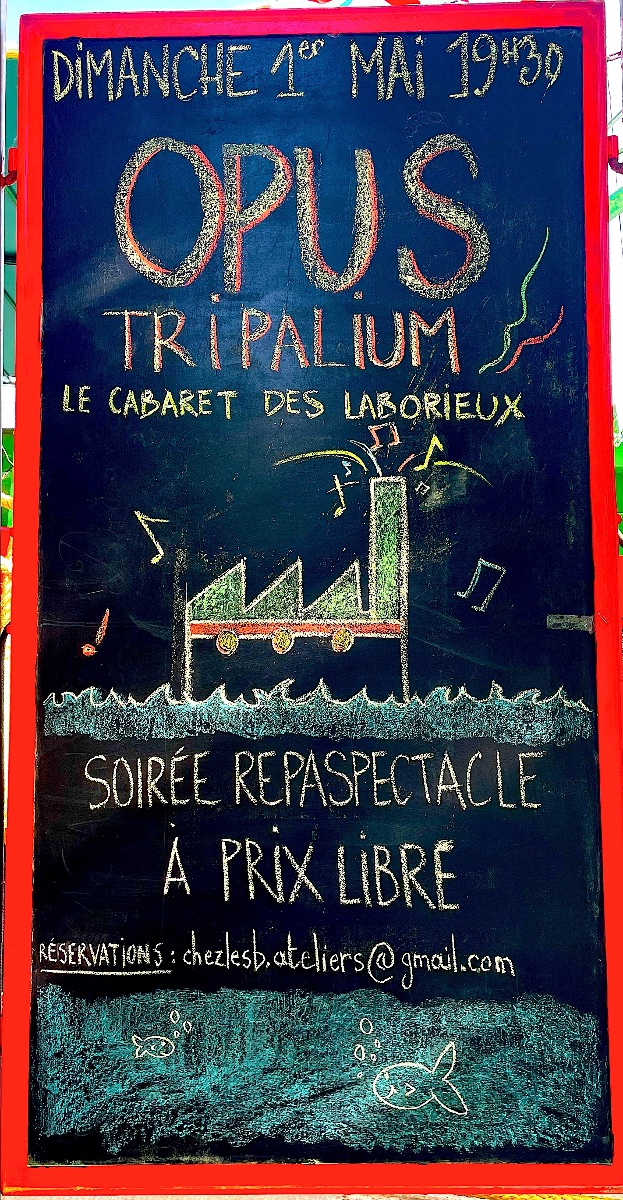 DIMANCHE 1er MAI 19H30
OPUS
TRIPALIUM
LE CABARET DES LABORIEUX
SOIRÉE REPASPECTACLE
À PRIX LIBRE
RÉSERVATIONS : chezlesb.ateliers@gmail.com